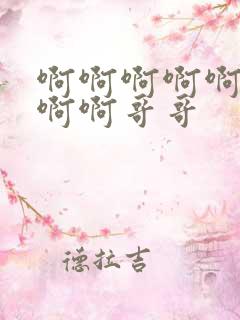 啊啊啊啊啊
啊啊哥哥
德拉吉